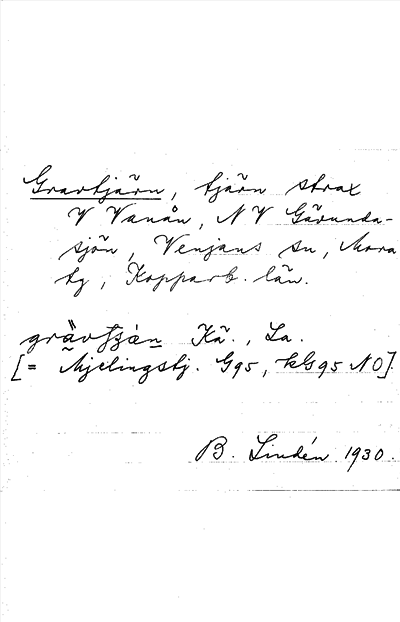 Gravtjärn, tjärn strax
V Vanån, NV Gävunda-
sjön, Venjans sn, Mora
tg, Kopparb. län.
Kä., La.
[= Mjelingstj. G95, kG95 NO].
B. Lindén 1930.